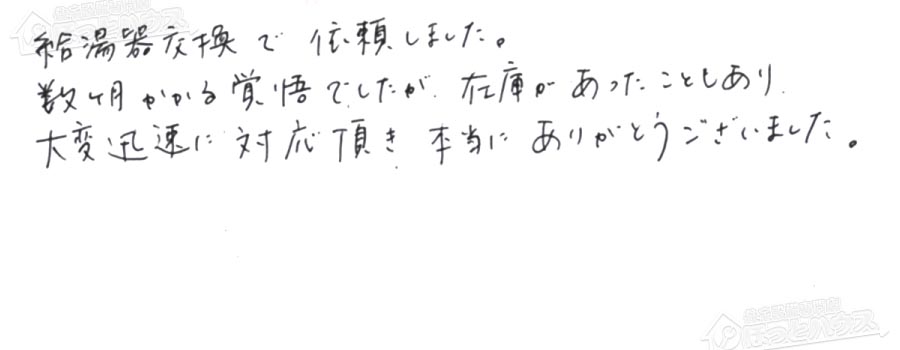 給湯器交換で依頼しました。
数ヶ月かかる覚悟でしたが、在庫があったこともあり、
大変迅速に対応頂き、本当にありがとうございました。
ほっとハウス
ほっとハウス